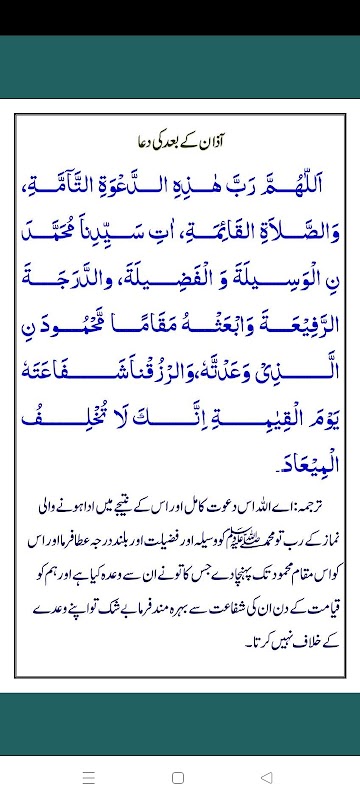 آذان کے بعد کی دعا
اَللّٰهُمَّ رَبَّ هٰذِهِ الدَّعْوَةِ التَّآمَّةِ،
وَالصَّلَاةِ القَائِمَةِ، اٰتِ سَيِّدِنَا مُحَمَّدَ
نِ الْوَسِيلَةَ وَ الْفَضِيلَةَ، والدَّرَجَةَ
الرَّفِيْعَةَ وَابْعَثْهُ مَقَامًا مَّحْمُودَنِ
الَّذِىْ وَعَدْتَّهٗ،وَالرْزُقْنَاشَفَاعَتَهٗ
يَوْمَ الْقِيٰمَةِ اِنَّكَ لَا تُخْلِفُ
الْمِيْعَادَ۔
ترجمہ: اے اللہ اس دعوت کامل اور اس کے نتیجے میں ادا ہونے والی
نماز کے رب تو محمد ﷺ کو وسیلہ اور فضیلت اور بلند درجہ عطا فرما اور اس
کو اس مقام محمود تک پہنچا دے جس کا تو نے ان سے وعدہ کیا ہے اور ہم کو
قیامت کے دن ان کی شفاعت سے بہرہ مند فرما بے شک تو اپنے وعدے
کے خلاف نہیں کرتا۔